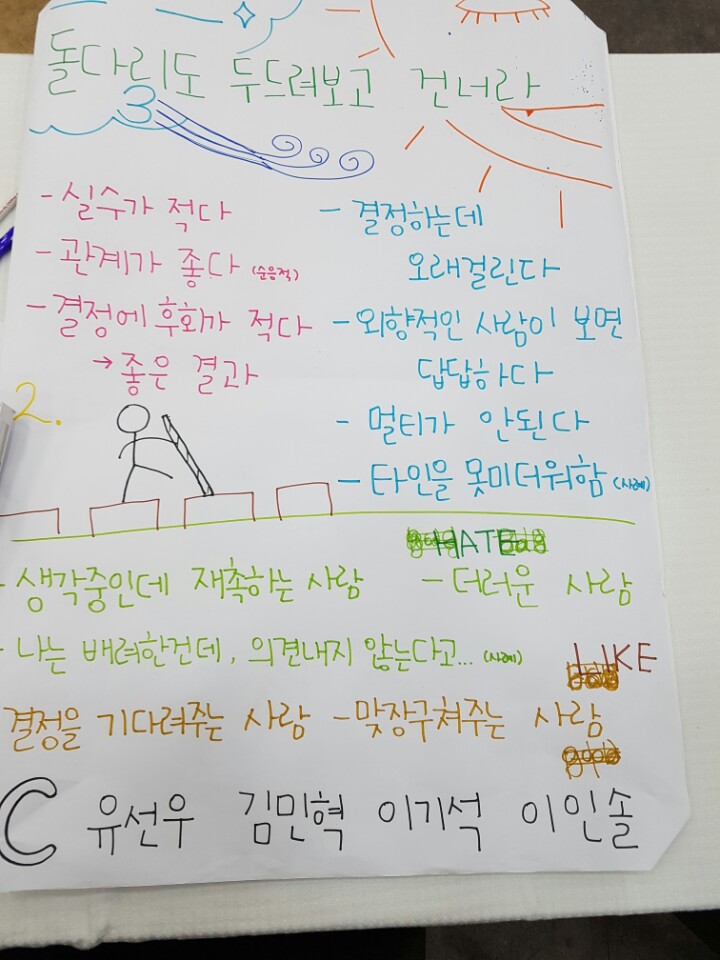 돌다리도 두드려보고 건너라
3
- 실수가 적다
- 관계가 좋다 (순응적)
- 결정에 후회가 적다
→ 좋은 결과
- 결정하는데
오래걸린다
- 외향적인 사람이 보면
답답하다
- 멀티가 안된다
- 타인을 못미더워함 (사례)
2.
HATE
- 생각중인데 재촉하는 사람 - 더러운 사람
- 나는 배려한건데, 의견내지 않는다고... (사례)
LIKE
결정을 기다려주는 사람 - 맞장구쳐주는 사람
C 유선우 김민혁 이기석 이인솔